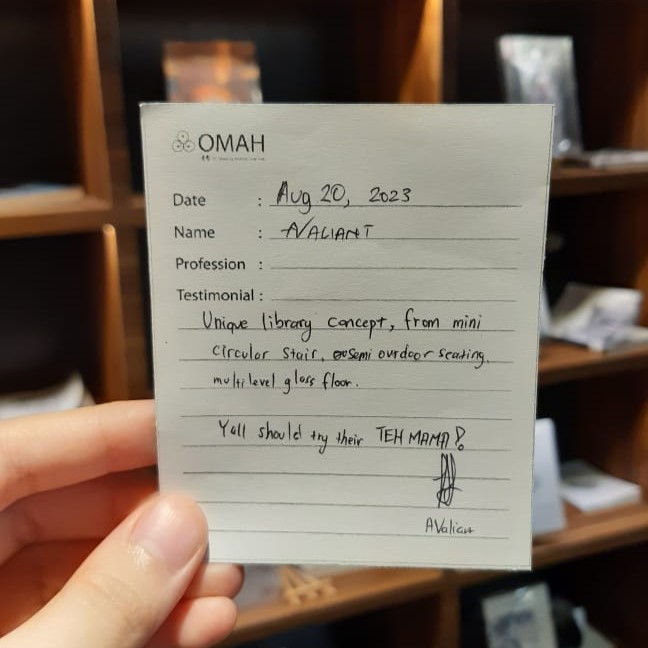 OMAH
Date : Aug 20, 2023
Name : AVALIANT
Profession :
Testimonial :
Unique library concept, from mini
circular stair, semi outdoor seating,
multilevel glass floor.
Yall should try their TEH MAMA!
AValiant